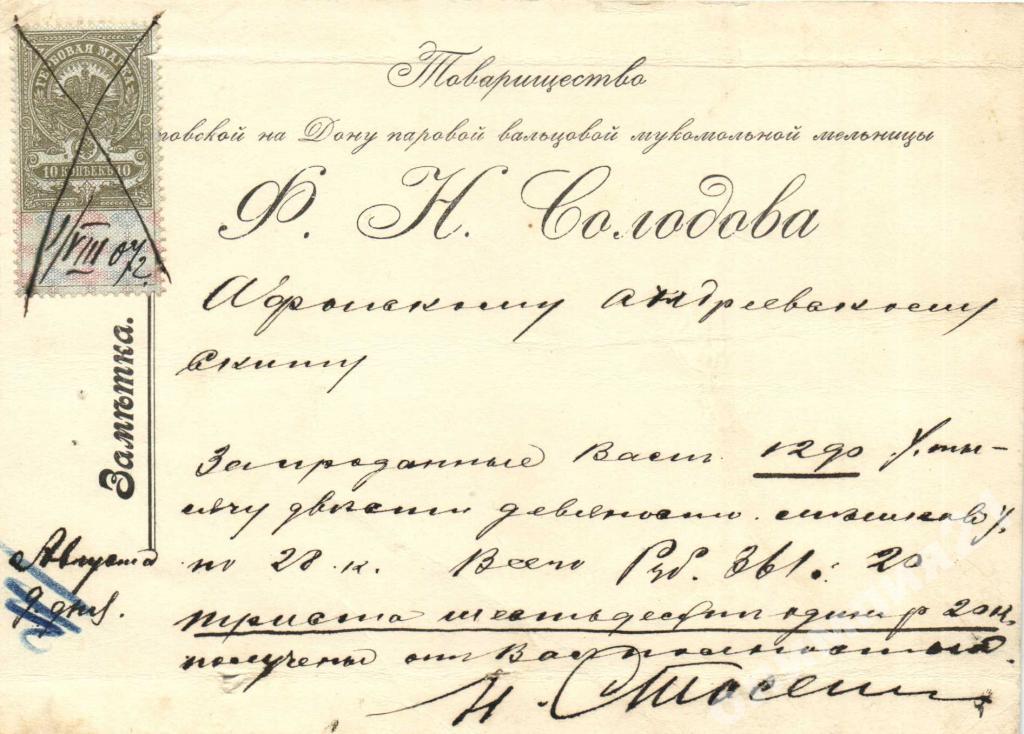 ГЕРБОВАЯ МАРКА
10 КОПѢЕКЪ 10
1/VIII 07 г.
Товарищество
товской на Дону паровой вальцовой мукомольной мельницы
Ф. Н. Солодова
Афонскому Андреевскому
Скиту
Замѣтка.
Запроданные Вамъ 1290 /. ты-
сячу двѣсти девяносто мѣшковъ /.
по 28 к. Всего Руб. 361. 20
триста шестьдесятъ одинъ р 20 к.
получены отъ Вас полностью.
Августа
9 дня.
Н.